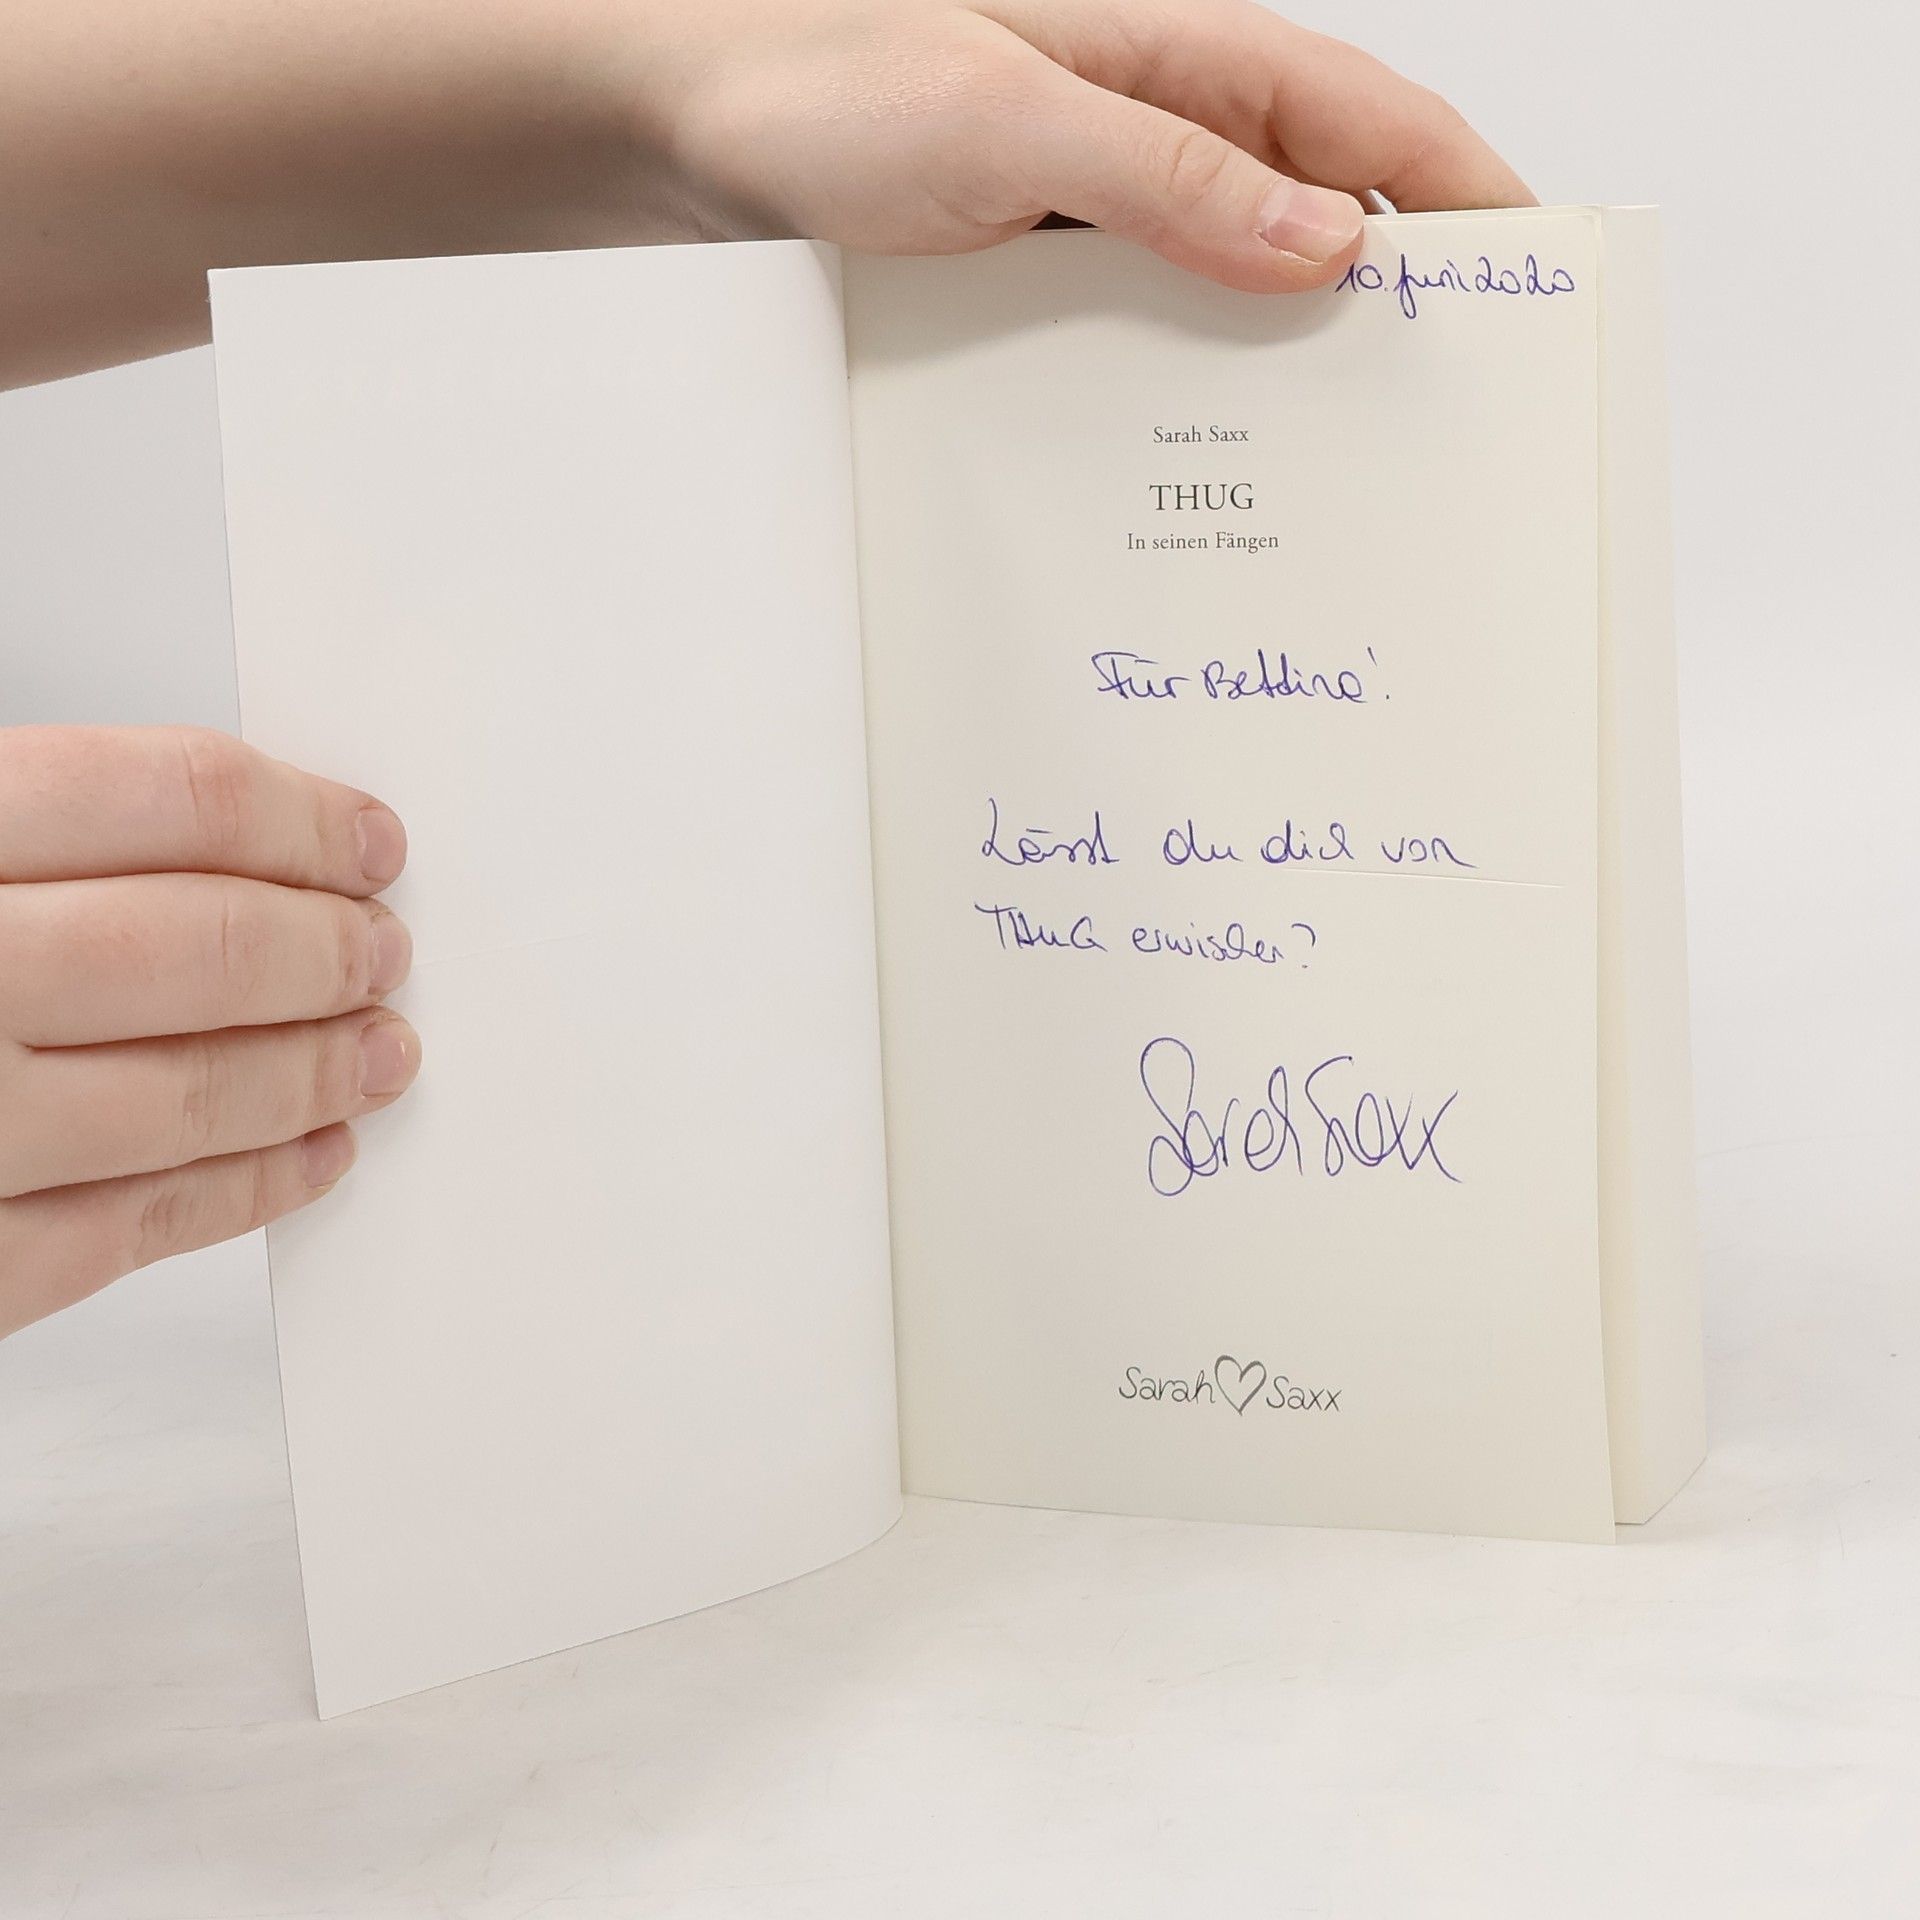 10. Juni 2020
Sarah Saxx
THUG
In seinen Fängen
Für Bettina!
Lässt du dich von
THUG erwischen?
Sarah Saxx
Sarah Saxx